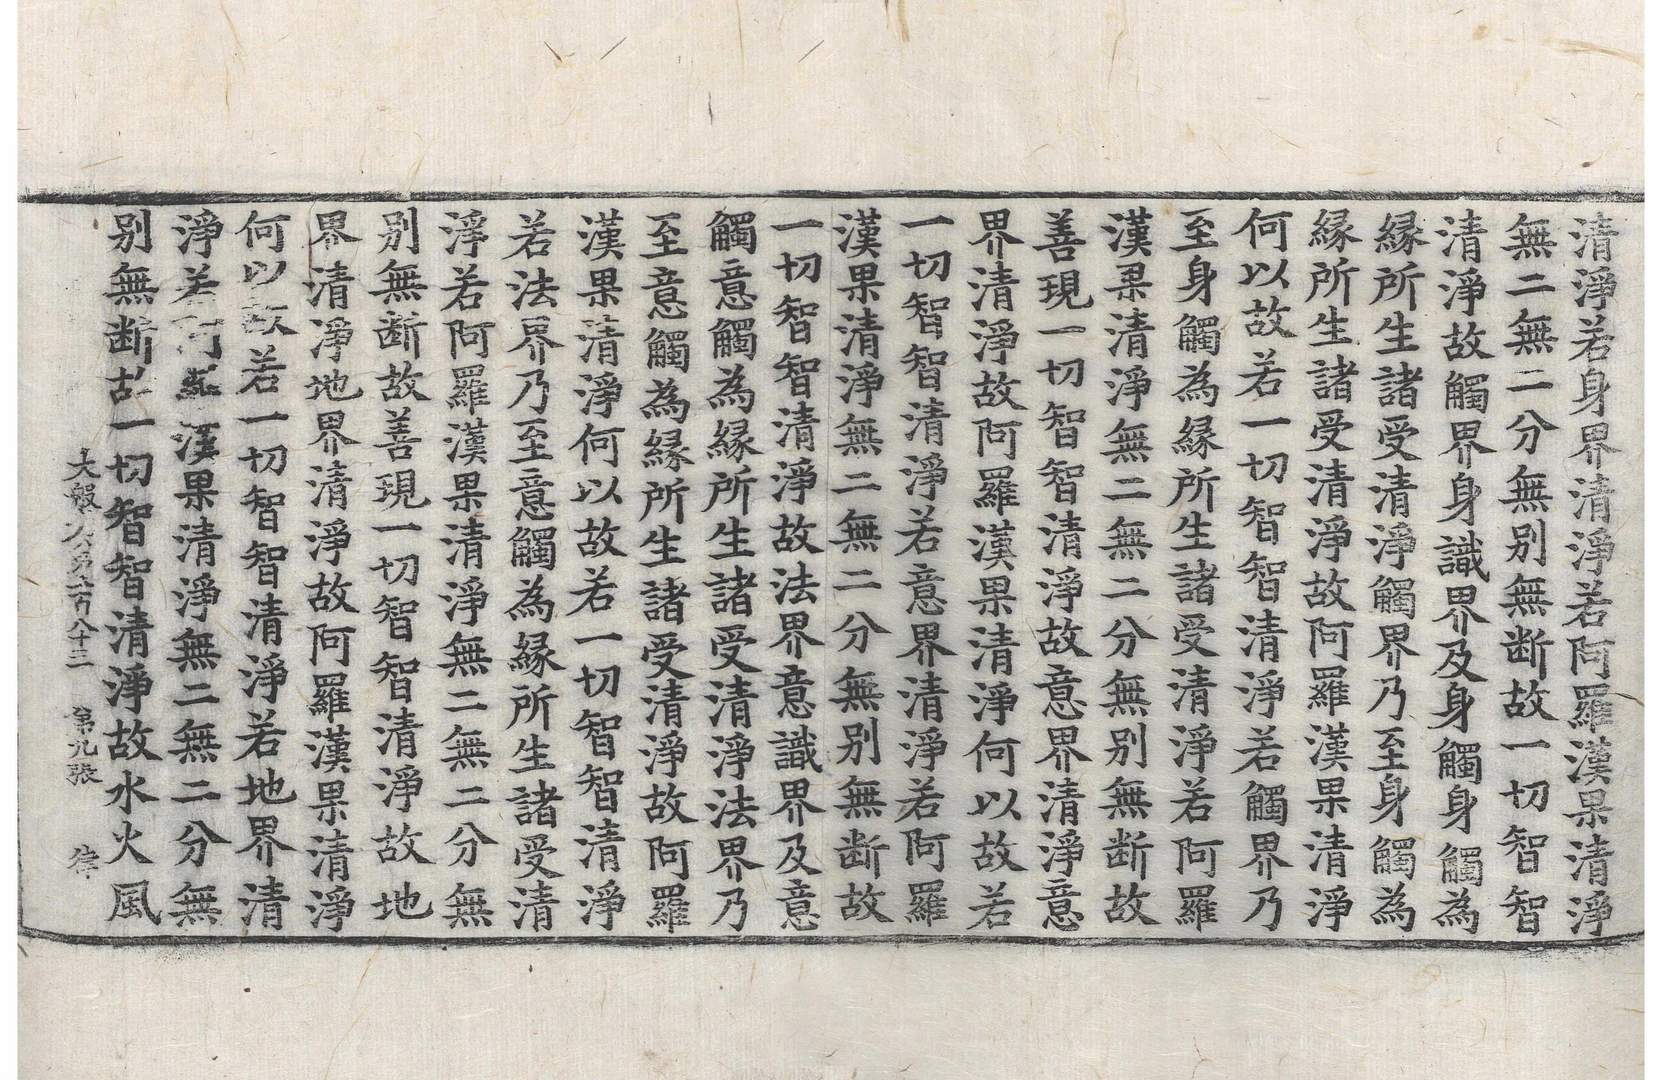 清淨若身界清淨若阿羅漢果清淨
無二無二分無別無断故一切智智
清淨故觸界身識界及身觸身觸為
緣所生諸受清淨觸界乃至身觸為
緣所生諸受清淨故阿羅漢果清淨
何以故若一切智智清淨若觸界乃
至身觸為緣所生諸受清淨若阿羅
漢果清淨無二無二分無別無断故
善現一切智智清淨故意界清淨意
界清淨故阿羅漢果清淨何以故若
一切智智清淨若意界清淨若阿羅
漢果清淨無二無二分無別無断故
一切智智清淨故法界意識界及意
觸意觸為緣所生諸受清淨法界乃
至意觸為緣所生諸受清淨故阿羅
漢果清淨何以故若一切智智清淨
若法界乃至意觸為緣所生諸受清
淨若阿羅漢果清淨無二無二分無
別無断故善現一切智智清淨故地
界清淨地界清淨故阿羅漢果清淨
何以故若一切智智清淨若地界清
淨若阿羅漢果清淨無二無二分無
別無断故一切智智清淨故水火風
大般 第二百八十三 第九張 律